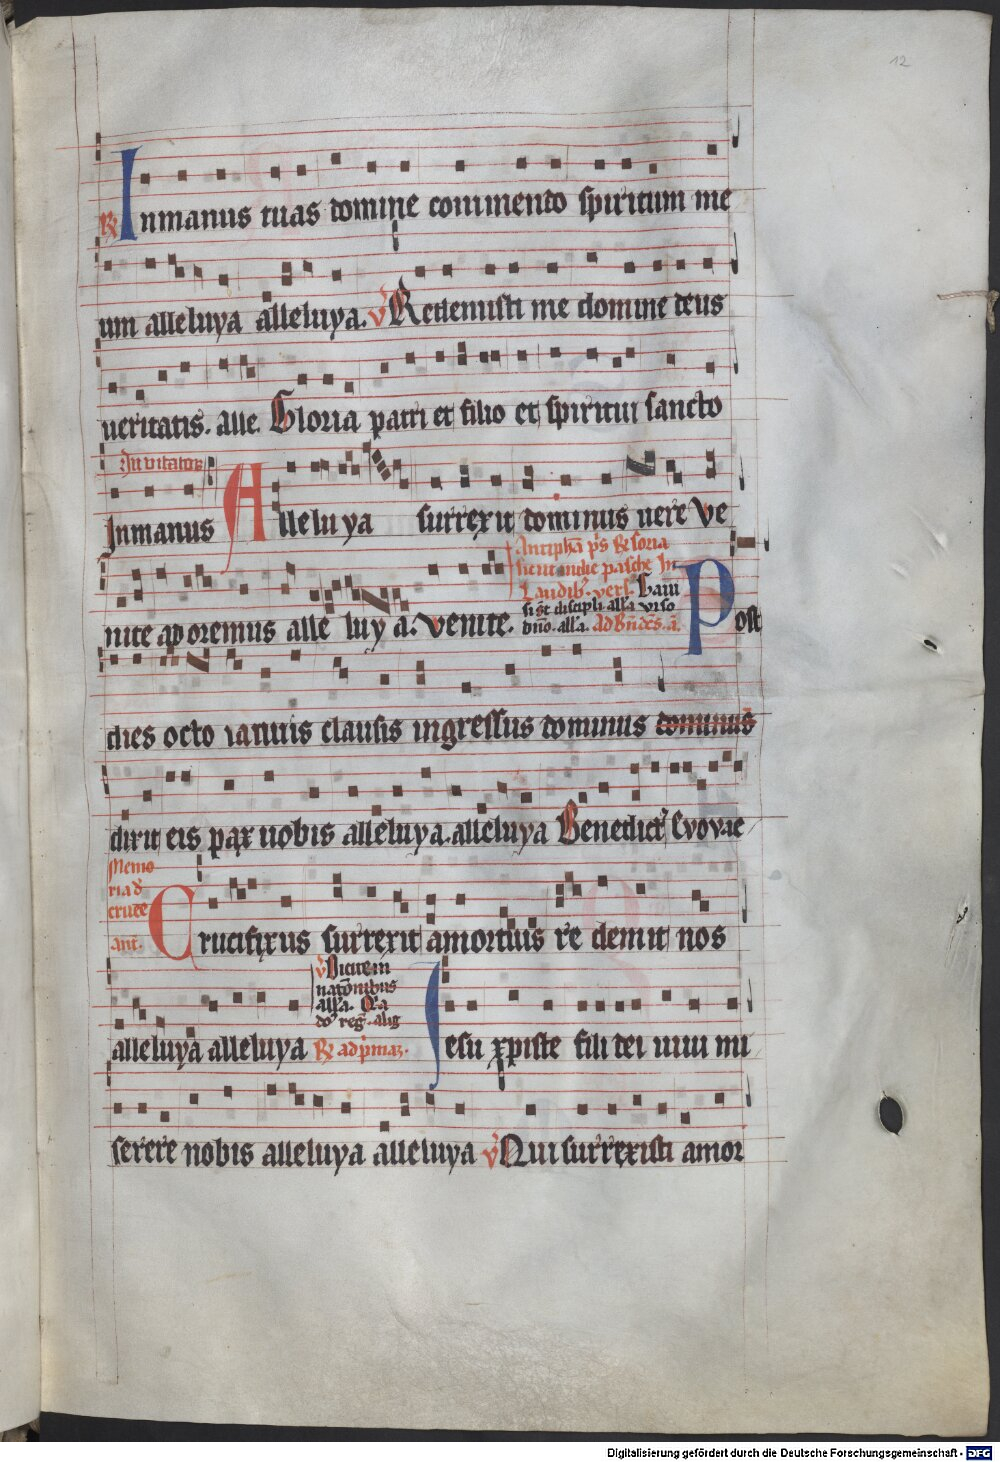 12
℟ Inmanus tuas domine commendo spiritum me
um alleluya alleluya. V̾ Redemisti me domine deus
ueritatis. alle. Gloria patri et filio et spiritui sancto
Inuitator
Inmanus Alleluya surrexit dominus uere Ve
Antiphā p̄s ℟soria
sicut in die pasche In
Laudib᷒. vers. Gaui
si st̄ discipli all'a viso
dn̄o. all'a. Ad Bn̄dc̄s. a̅.
nite adoremus alle luy a. venite. Post
dies octo ianuis clausis ingressus dominus dominus
dixit eis pax uobis alleluya. alleluya Benedict᷒ Evovae
Memo
ria d̄
cruce
ant̄.
Crucifixus surrexit amortuis redemit nos
V̾ Dicite in
nationibus
all'a. Q'a
do᷒ reg̅. alig
alleluya alleluya ℟ ad p̄maȝ. Iesu xpiste fili dei uiui mi
serere nobis alleluya alleluya V̾ Qui surrexisti amor
Digitalisierung gefördert durch die Deutsche Forschungsgemeinschaft - DFG